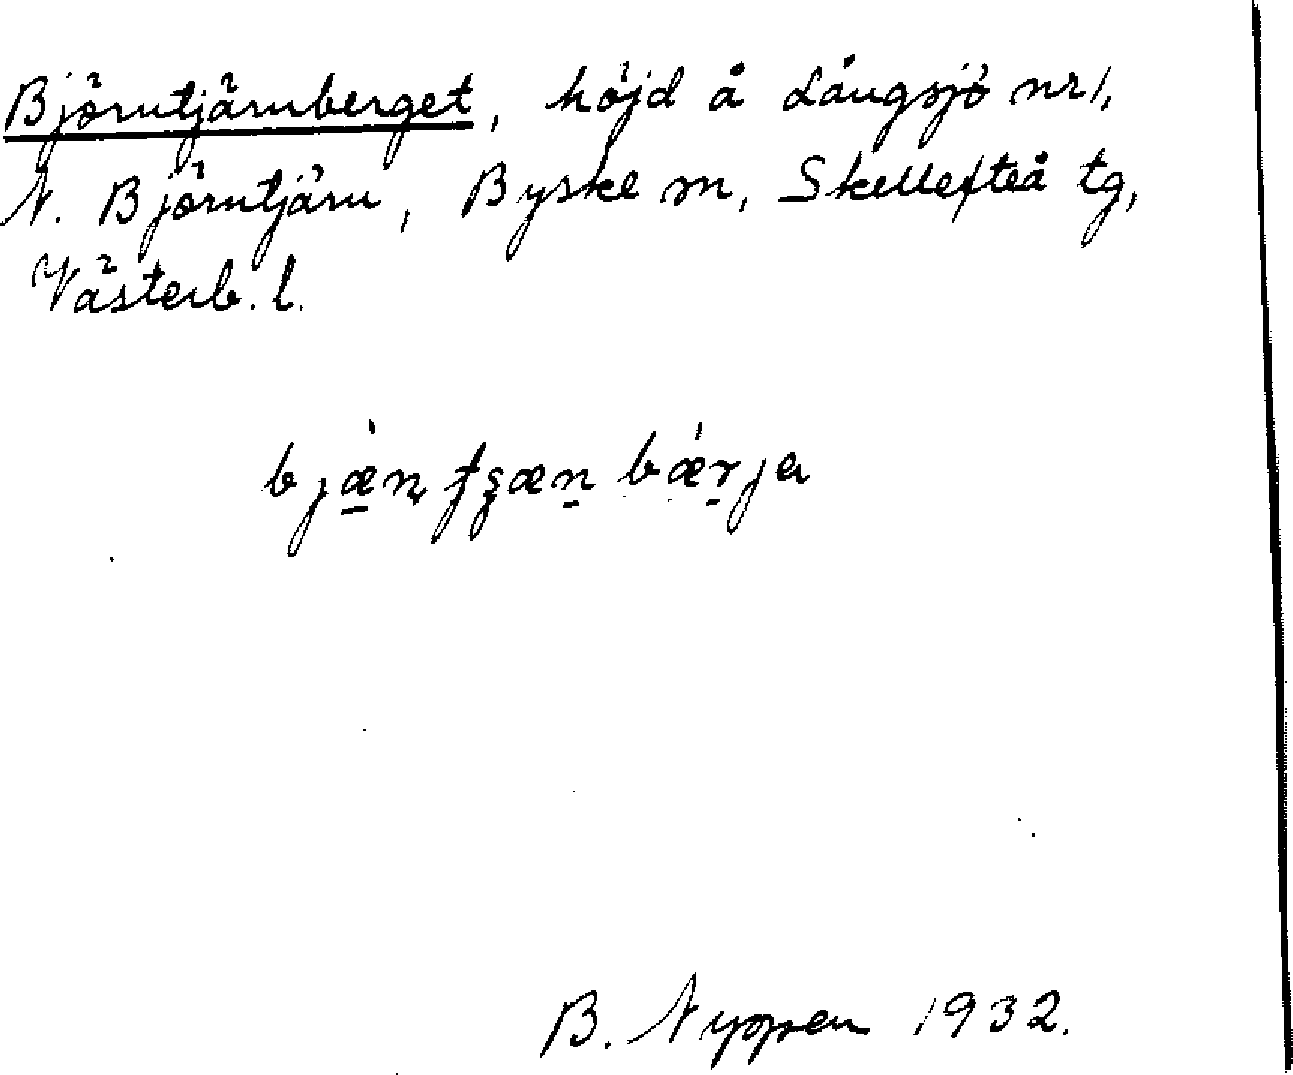 Björntjärnberget, höjd å Långsjö nr 1,
N. Björntjärn, Byske sn, Skellefteå tg,
Västerb. l.
bjæ̀n tʂæn bǽrja
B. Nyppen 1932.